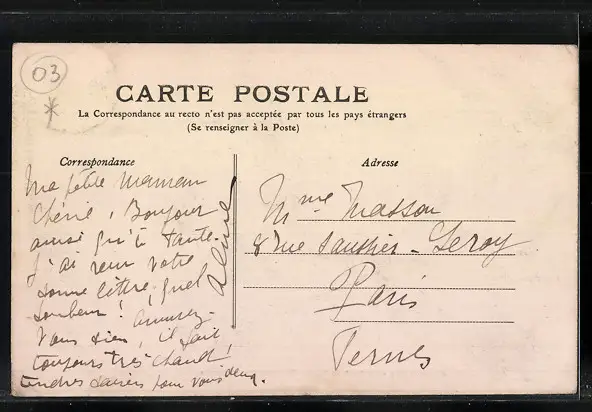 03
CARTE POSTALE
La Correspondance au recto n'est pas acceptée par tous les pays étrangers
(Se renseigner à la Poste)
Correspondance
Adresse
Ma petite Maman
Chérie, Bonjour
ainsi qu'à Tante.
J'ai reçu votre
bonne lettre, quel
bonheur! Amusez-
vous bien, il fait
toujours très chaud!
tendres baisers pour vous deux.
Mme Masson
8 rue Saussier-Leroy
Paris
Ternes